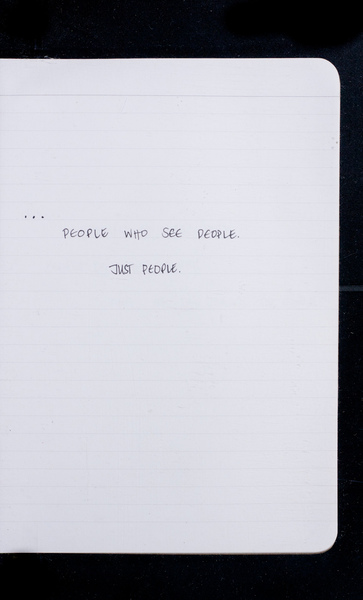 ...
PEOPLE WHO SEE PEOPLE.
JUST PEOPLE.